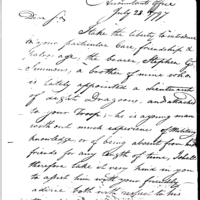 Accountants Office
July 28 1797
Dear Sir
I take the liberty to introduce
to your particular care, friendship &
patronage, the bearer, Stephen G.
Simmons, a brother of mine who
is lately appointed a Lieutenant
of Light Dragoons, and attached
to your Troop; he is a young man
without much experience of Military
knowledge, or of being absent from his
friends for any length of time, I shall
therefore take it very kind in you
to assist him with your friendly
advice both with respect to his